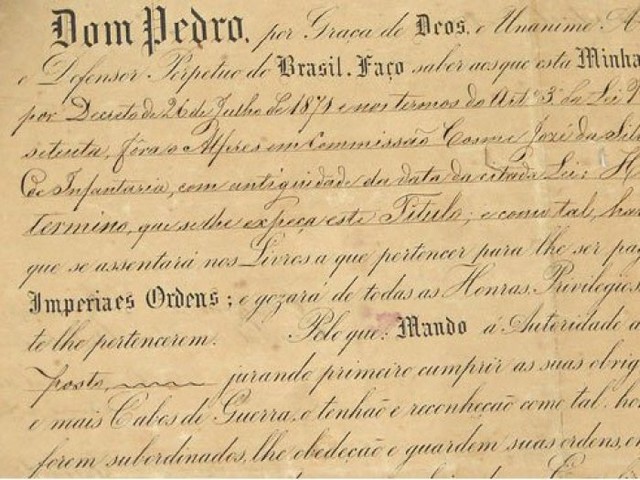 Dom Pedro, por Graça de Deos, e Unanime A
e Defensor Perpetuo do Brasil. Faço saber aos que esta Minha
por Decreto de 26 de Julho de 1871 e nos termos do Artº 3º da Lei
setenta, fôra o Alferes em Commissão Cosme Jozé da Sil
de Infantaria, com antiguidade da data da citada Lei: H
termino, que se lhe expeça este Titulo; e como tal, hav
que se assentará nos Livros a que pertencer para lhe ser pag
Imperiaes Ordens; e gozará de todas as Honras, Privilegios,
te lho pertencerem. Pelo que: Mando á Autoridade a
posto, jurando primeiro cumprir as suas obrig
e mais Cabos de Guerra, o tenhão e reconheção como tal, ho
forem subordinados, lhe obedeção e guardem suas ordens, e